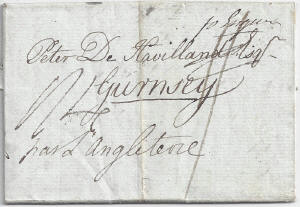 Peter De Havilland Esqr.
Guernsey
par L'Angleterre